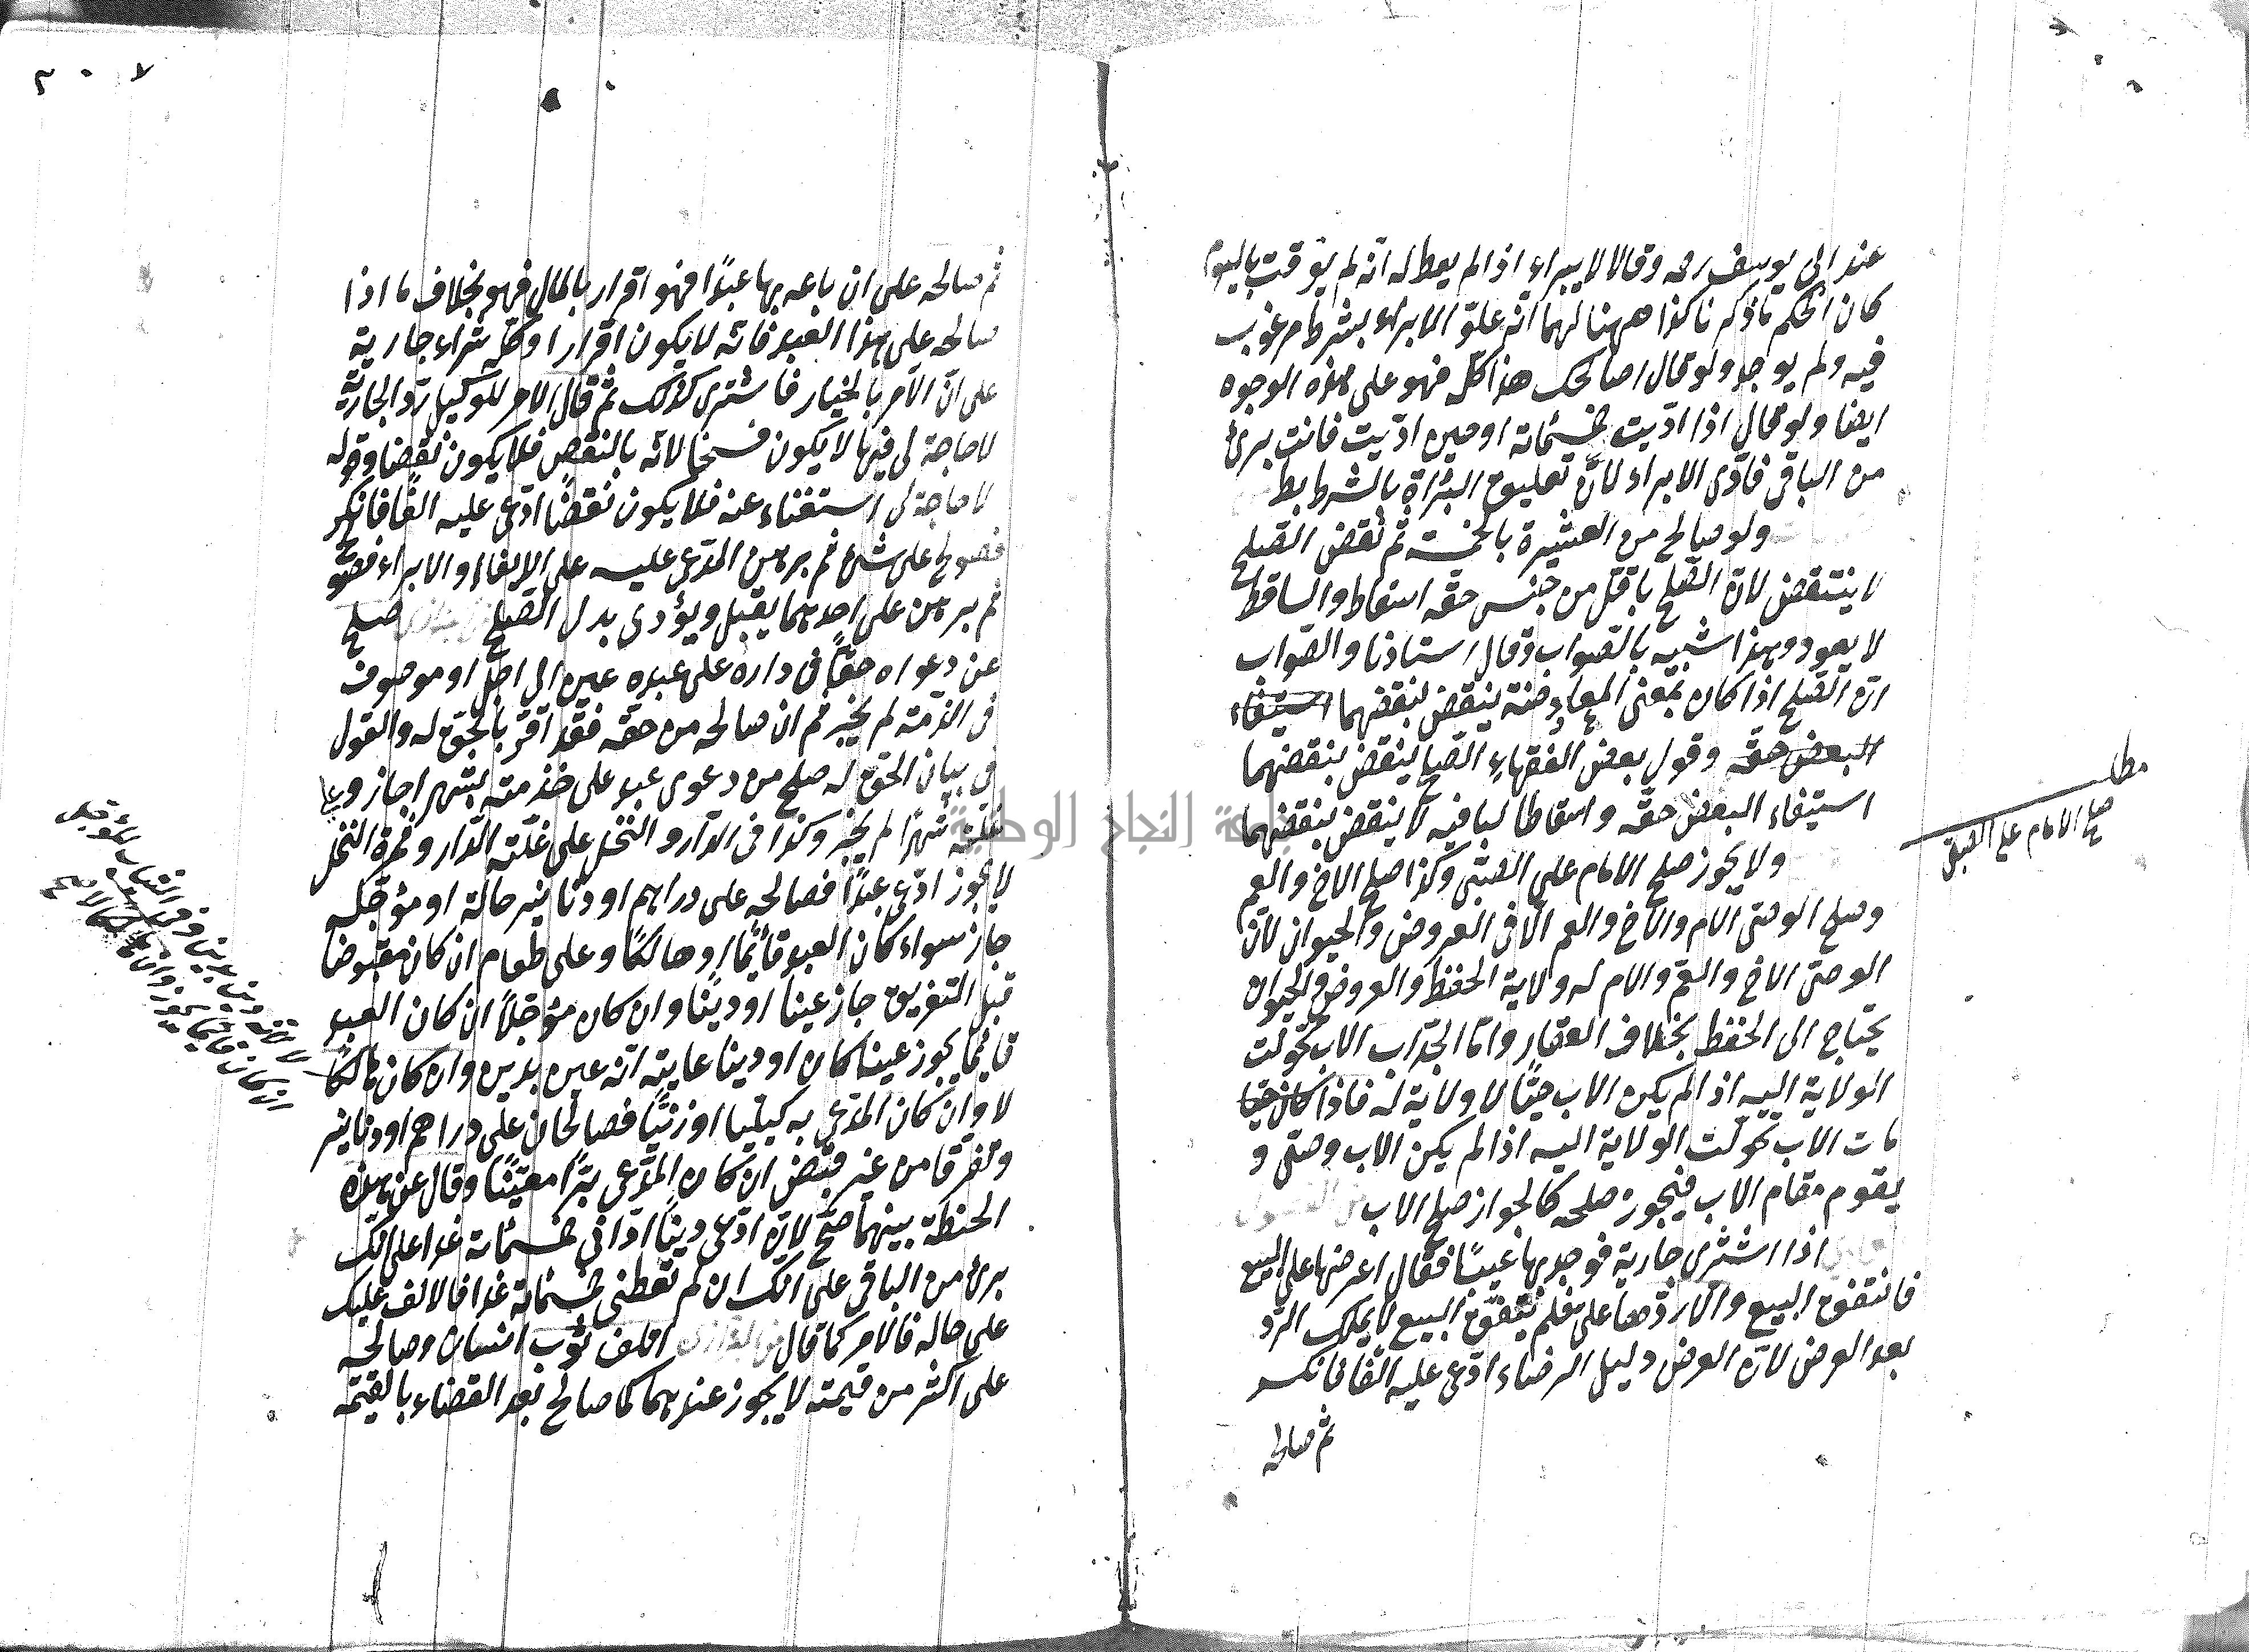 عند ابى يوسف رحمه وقالا لا يبراء اذا لم يعطه له انه لم يوقت باليوم
كان الحكم ما ذكرنا كذا ههنا لهما انه علق الابراء بشرط مرغوب
فيه ولم يوجد ولو قال اصالحك هذا كله فهو على هذه الوجوه
ايضا ولو قال اذا اديت خمسمائة او حين اديت فانت برئ
من الباقى فادى الابراء لان تعليق البراة بالشرط بط
ولو صالح من العشرة بالخمسة ثم نقض الصلح
لا ينتقض لان الصلح باقل من جنس حقه اسقاط والساقط
لا يعود وهذا شبيه بالصواب وقال استاذنا والصواب
ان الصلح اذا كان بمعنى المعاوضة ينتقض بنقضهما استيفاء
البعض حقه وقول بعض الفقهاء الصلح ينتقض بنقضهما
استيفاء البعض حقه واسقاطا لباقيه لا ينتقض بنقضهما
ولا يجوز صلح الامام على الصبى وكذا صلح الاخ والعم
وصلح الوصى الام والاخ والعم الا فى العروض والحيوان لان
الوصى الاخ والعم والام له ولاية الحفظ والعروض والحيوان
يحتاج الى الحفظ بخلاف العقار واما الجد اب الاب تحولت
الولاية اليه اذا لم يكن الاب حيا لا ولاية له فاذا كان حيا
مات الاب تحولت الولاية اليه اذا لم يكن الاب وصى و
يقوم مقام الاب فيجوز صلحه كالجواز صلح الاب
اذا اشترى جارية فوجد بها عيبا فقال اعرضها على البيع
فانتفق البيع والا ردها على فلم يتفق البيع لا يملك الرد
بعد العرض لان العرض دليل الرضاء ادعى عليه الفا فانكر
ثم صالحه
مطلب
صلح الامام على الصبى
٣٠٧
ثم صالحه على ان باعه بها عبدا فهو اقرار بالمال فهو بخلاف ما اذا
صالحه على هذا العبد فانه لا يكون اقرارا وكله شراء جارية
على ان الآمر بالخيار فاشترى كذلك ثم قال الامر للوكيل رد الجارية
لا حاجة لى فيها لا يكون فسخا لانه بالنقض فلا يكون نقضا وقوله
لا حاجة لى استغناء عنه فلا يكون نقضا ادعى عليه الفا فانكر
فصولح على شئ ثم برهن المدعى عليه على الايفاء او الابراء
ثم برهن على احدهما يقبل ويؤدى بدل الصلح صلح
عن دعواه حقا فى داره على عبده عين الى اجل او موصوف
فى الذمة لم يجز ثم ان صالحه من حقه فقد اقر بالحق له والقول
فى بيان الحق له صلح من دعوى عبد على خدمته بشهر اجاز وعلى
غلته شهرا لم يجز وكذا فى الدار والنخل على غلة الدار وثمرة النخل
لا يجوز ادعى عبدا فصالحه على دراهم او دنانير حالة او مؤجله
جاز سواء كان العبد قائما او هالكا وعلى طعام ان كان مقبوضا
قبل التفريق جاز عينا او دينا وان كان مؤجلا ان كان العبد
قائما يجوز عينا كان او دينا غايته انه عين بدين وان كان هالكا
لا وان كان المدعى به كيليا او زنيا فصالحان على دراهم او دنانير
وتفرقا من غير قبض ان كان المدعى برا معينا وقال عن هذه
الحنطة بينهما صح لان ادعى دينا ادا فى خمسمائة غدا على انك
برئ من الباقى على انك ان لم تعطنى خمسمائة غدا فالالف عليك
على حاله فالامر كما قال من البزازى اتلف ثوب انسان وصالحه
على اكثر من قيمته لا يجوز عندهما كما صالح بعد القضاء بالقيمة